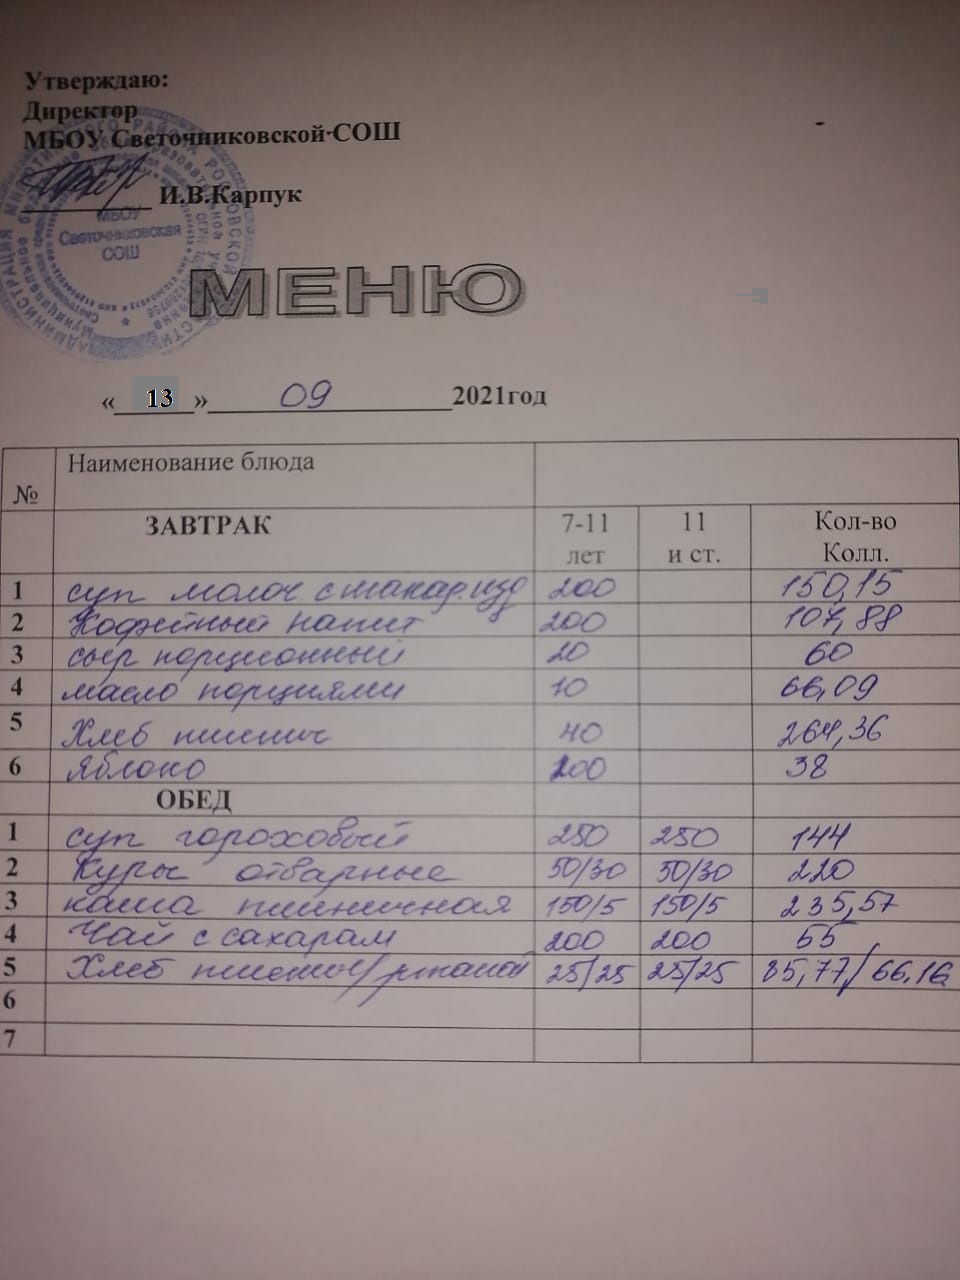 Утверждаю:
Директор
МБОУ Светочниковской СОШ
И.В.Карпук
МБОУ
Светочниковская
СОШ
МЕНЮ
« 13 » 09 2021год
№ Наименование блюда
ЗАВТРАК 7-11 лет 11 и ст. Кол-во Колл.
1 суп молоч с макар.изд 200 150,15
2 Кофейный напит 200 107,88
3 сыр порционный 20 60
4 масло порциями 10 66,09
5 Хлеб пшенич 40 264,36
6 Яблоко 200 38
ОБЕД
1 суп гороховый 250 250 144
2 Куры отварные 50/30 50/30 220
3 каша пшеничная 150/5 150/5 235,57
4 Чай с сахарам 200 200 55
5 Хлеб пшенич/ржаной 25/25 25/25 85,77/66.16
6
7